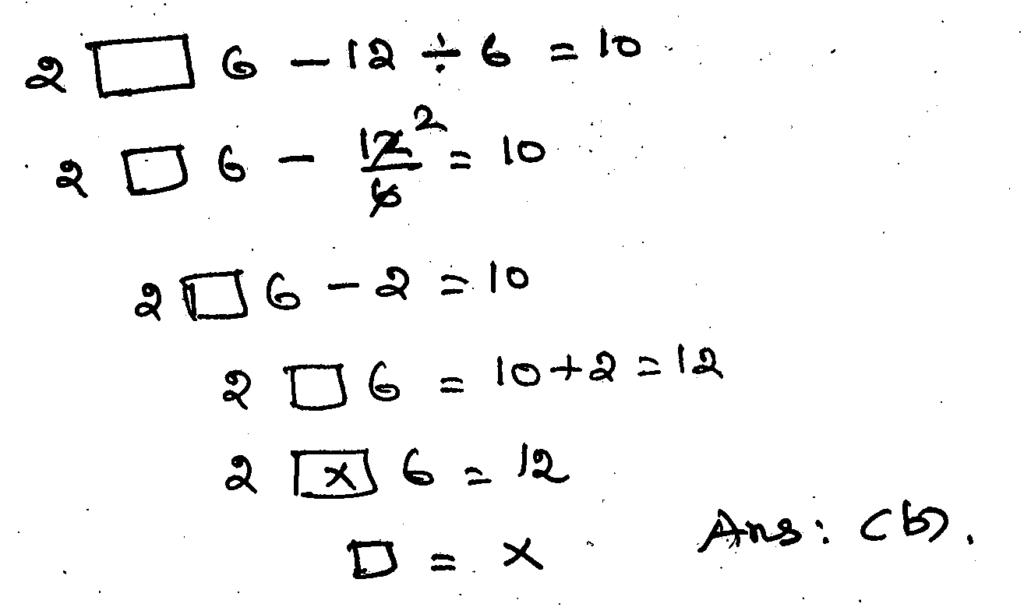 2 □ 6 - 12 ÷ 6 = 10
2 □ 6 - 12/6 2 = 10
2 □ 6 - 2 = 10
2 □ 6 = 10 + 2 = 12
2 [×] 6 = 12
□ = × Ans: (b).